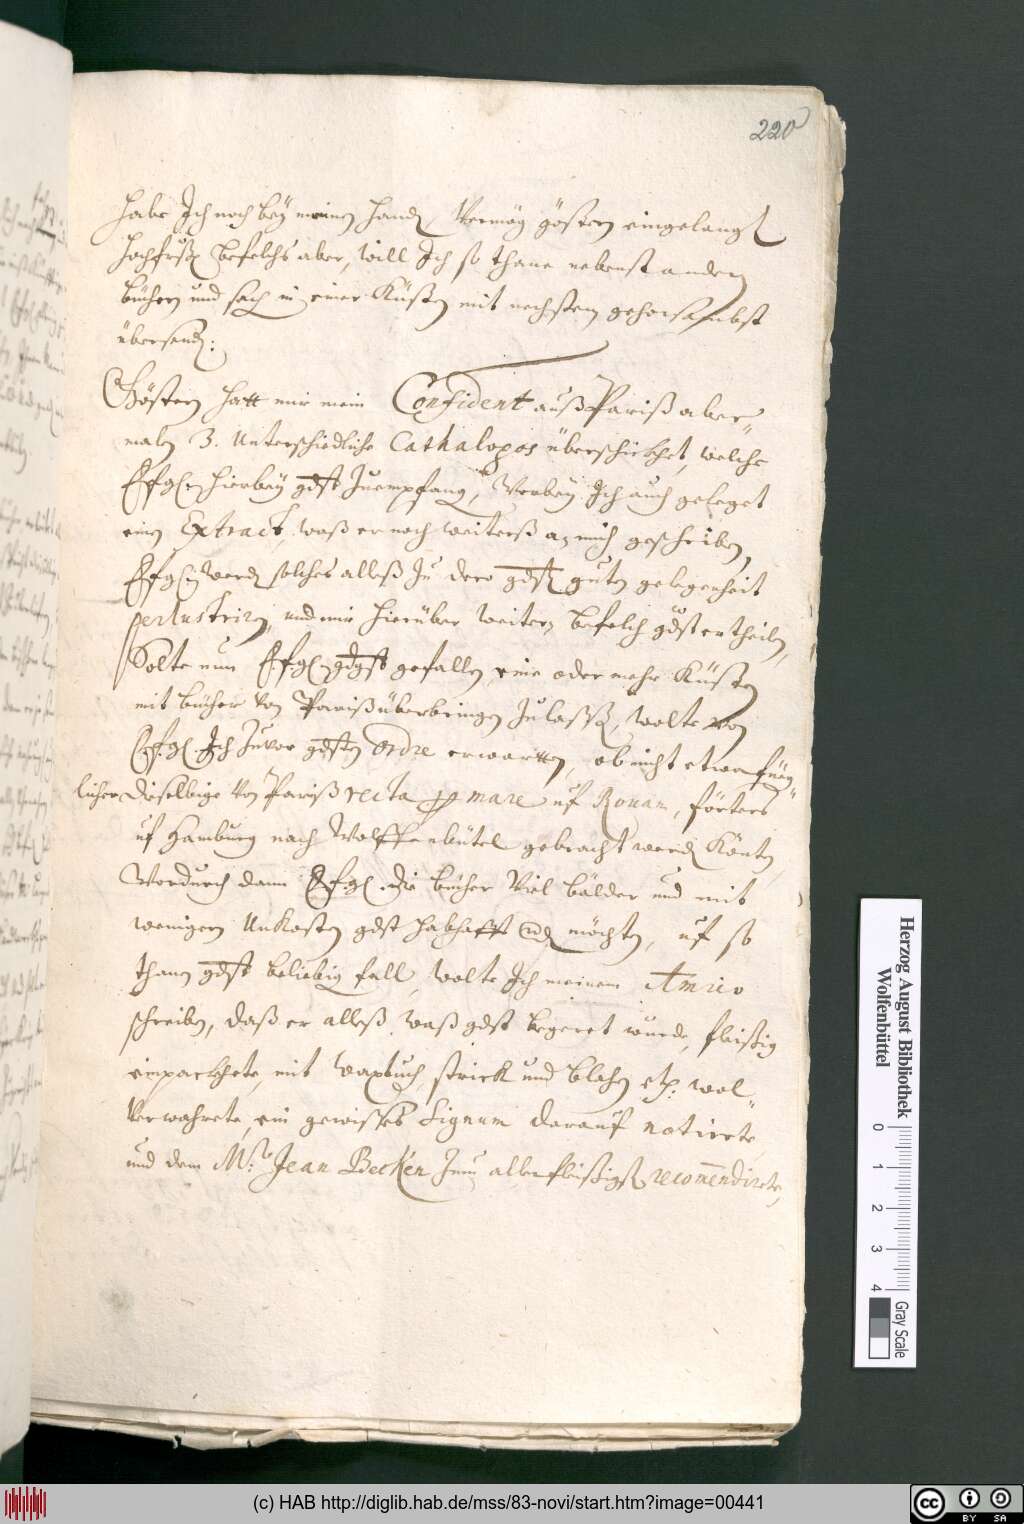 220
habe Ich noch bey meinen handen Vermög gösten eingelangt
hochfürstl. befelchs aber, will Ich so thane nebenst andern
büchern und sach in einer Küsten mit nechstem gehorsambst
übersenden:
Gösten hatt mir mein Confident auß Pariß aber-
maln 3. Unterschiedliche Cathalogos überschickhet, welche
Efgl. hierbey gdst Zuempfang, Worbey Ich auch geleget
einen Extract, waß er noch weiterß an mich geschriben,
Efgl. werden solches alleß Zu dero gdst guten gelegenheit
perlustriren, und mir hierüber weitern befelch gdst ertheilen,
Solte nun Efgl. gdgst gefallen, eine oder mehr Küsten
mit bücher von Pariß überbringen Zulassen, wolte von
Efgl. Ich Zuvor gdsten Ordre erwartten, ob nicht etwa füeg-
licher dieselbige von Pariß recta per mare uf Rouan, förters
uf Hamburg nach Wolffenbütel gebracht werden Könten,
Wordurch dann Efgl. die bücher Viel bälder und mit
wenigern Unkosten gdst habhafft möchten, uf so
thanen gdst beliebig fall, wolte Ich meinem Amico
schreiben, daß er alleß waß gdst begeret wurde, fleißig
einpackhete, mit waxtuch, strick und blahen etc: wol-
Verwahrete, ein gewisses Signum darauf notirete
und dem Mr. Jean Becken Zum allerfleißigst recomendirete,
Herzog August Bibliothek
Wolfenbüttel
0 1 2 3 4
Gray Scale
(c) HAB http://diglib.hab.de/mss/83-novi/start.htm?image=00441
cc BY SA